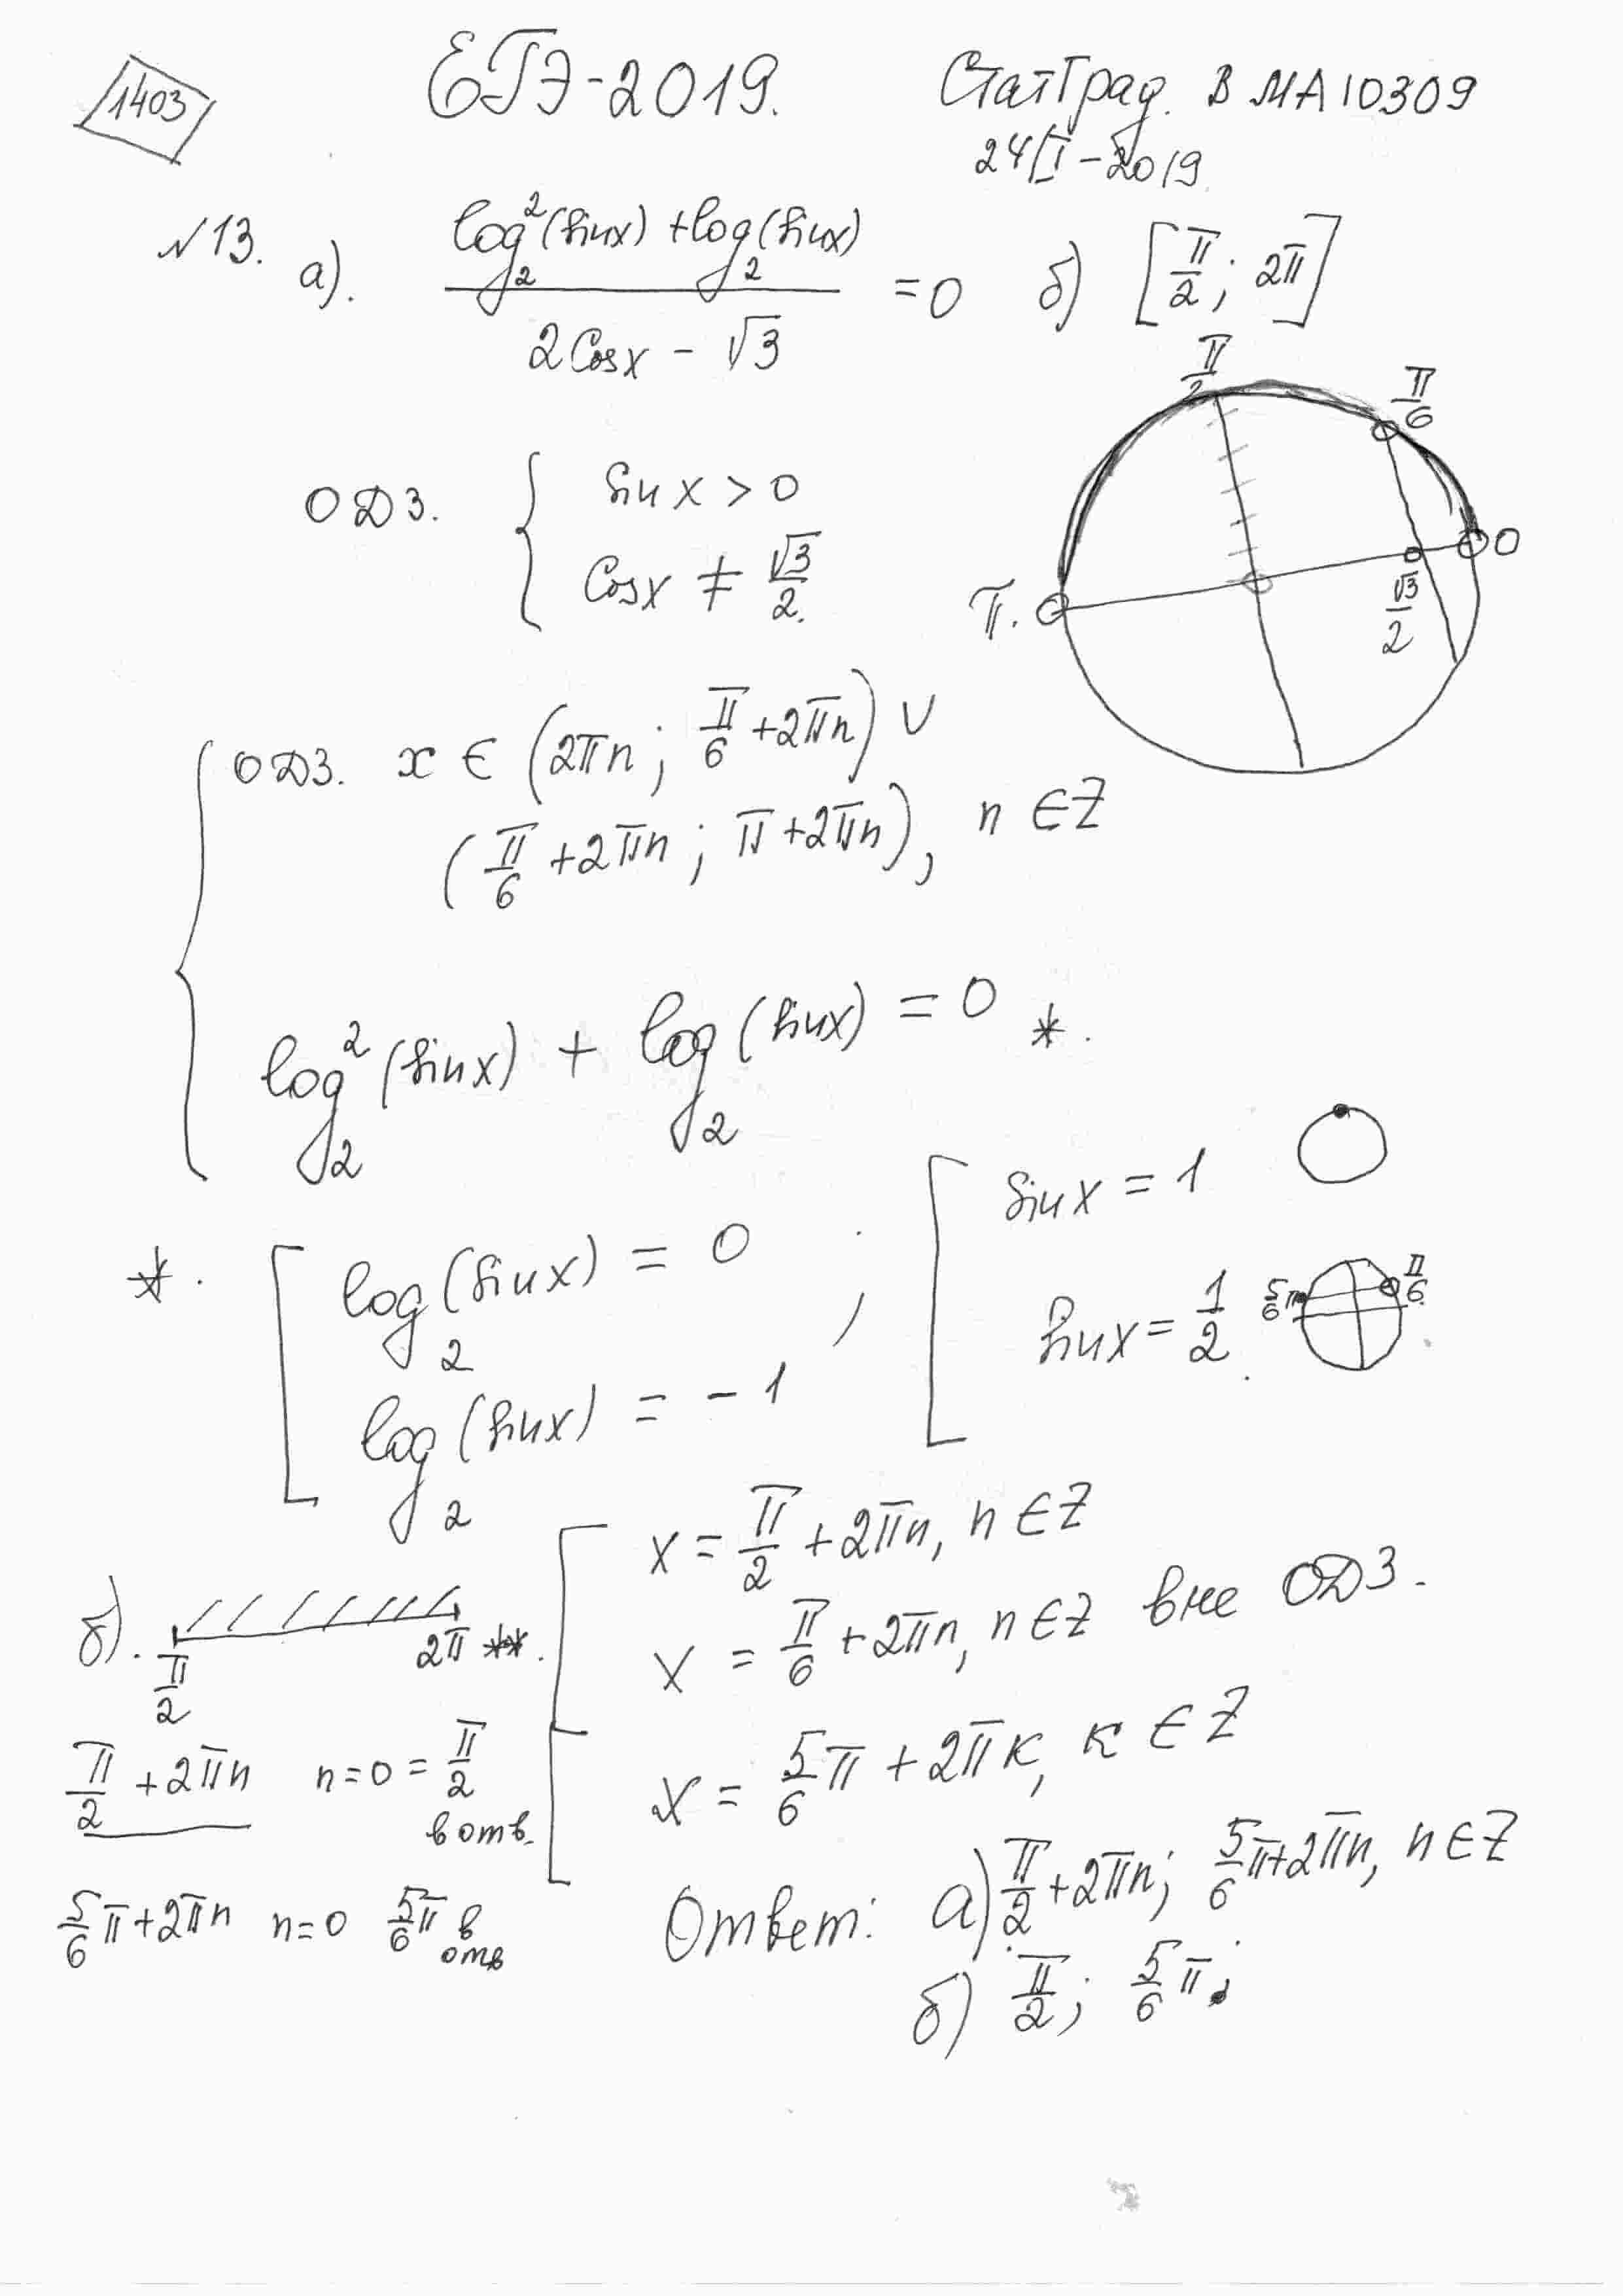 1403
ЕГЭ-2019.
СтатГрад. ВМА10309
24/I-2019.
№13. а). (log₂²(sinx) + log₂(sinx)) / (2Cosx - √3) = 0 б) [π/2; 2π]
π/2
π/6
π.
0
√3/2
ОДЗ. { sinx > 0
Cosx ≠ √3/2.
{ ОДЗ. x ∈ (2πn; π/6 + 2πn) ∪
(π/6 + 2πn; π + 2πn), n ∈ Z
log₂²(sinx) + log₂(sinx) = 0 *.
*. [ log₂(sinx) = 0 ; [ sinx = 1
log₂(sinx) = -1 sinx = 1/2.
5/6 π
π/6
[ x = π/2 + 2πn, n ∈ Z
x = π/6 + 2πn, n ∈ Z вне ОДЗ.
x = 5/6 π + 2πк, к ∈ Z
б). π/2 2π **.
π/2 + 2πn n=0 = π/2
в отв.
5/6 π + 2πn n=0 5/6 π в
отв
Ответ: а) π/2 + 2πn; 5/6 π + 2πn, n ∈ Z
б) π/2; 5/6 π.